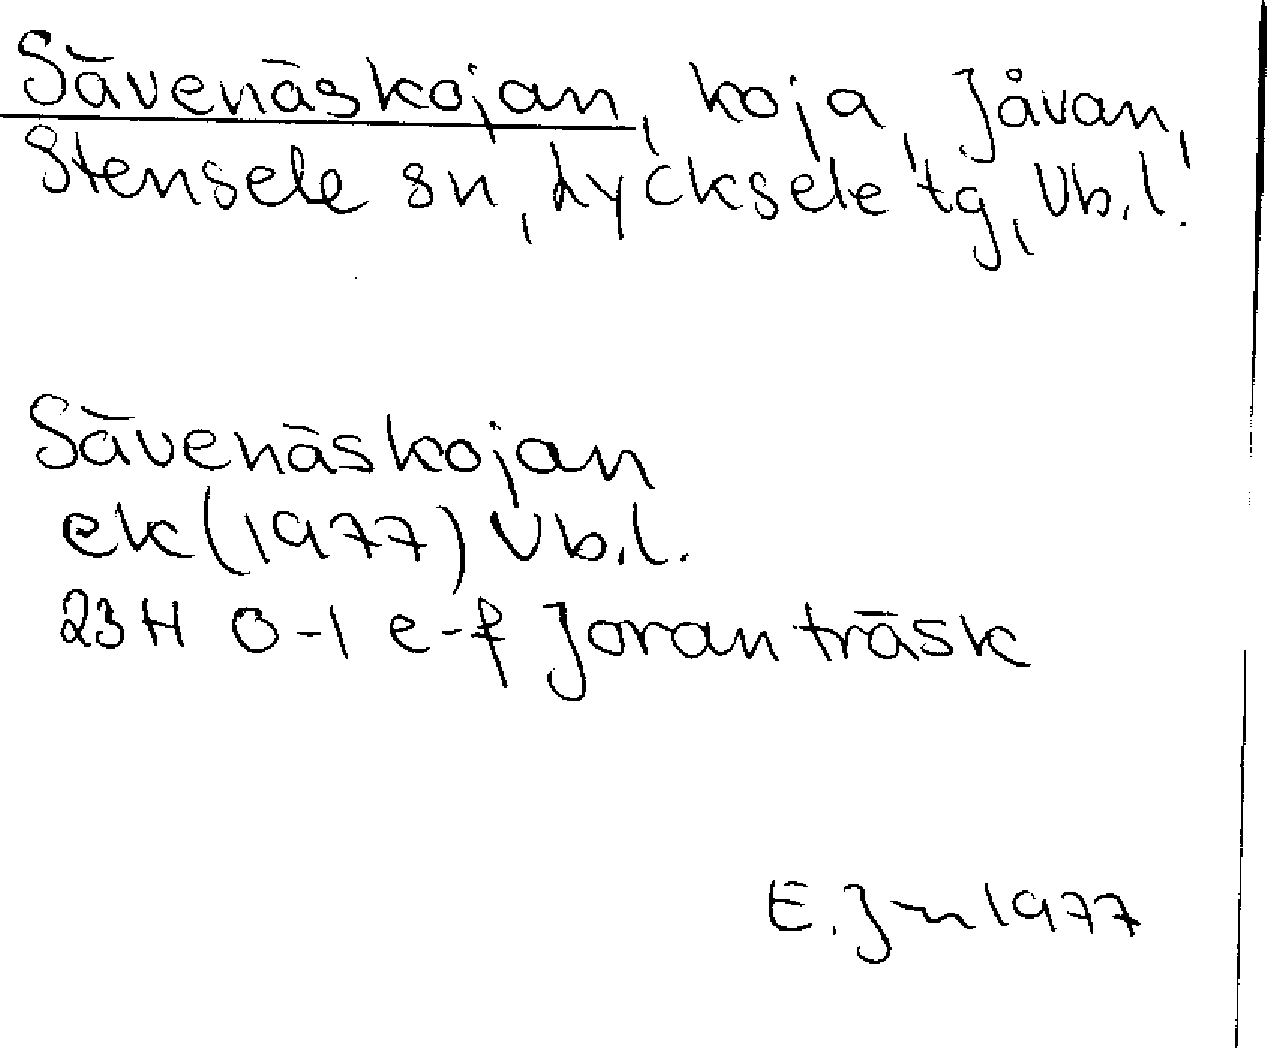 Sävenäskojan, koja, Jåvan,
Stensele sn, Lycksele tg, Vb.l.
Sävenäskojan
ek (1977) Vb.l.
23H 0-1 e-f Joranträsk
E. J~n 1977